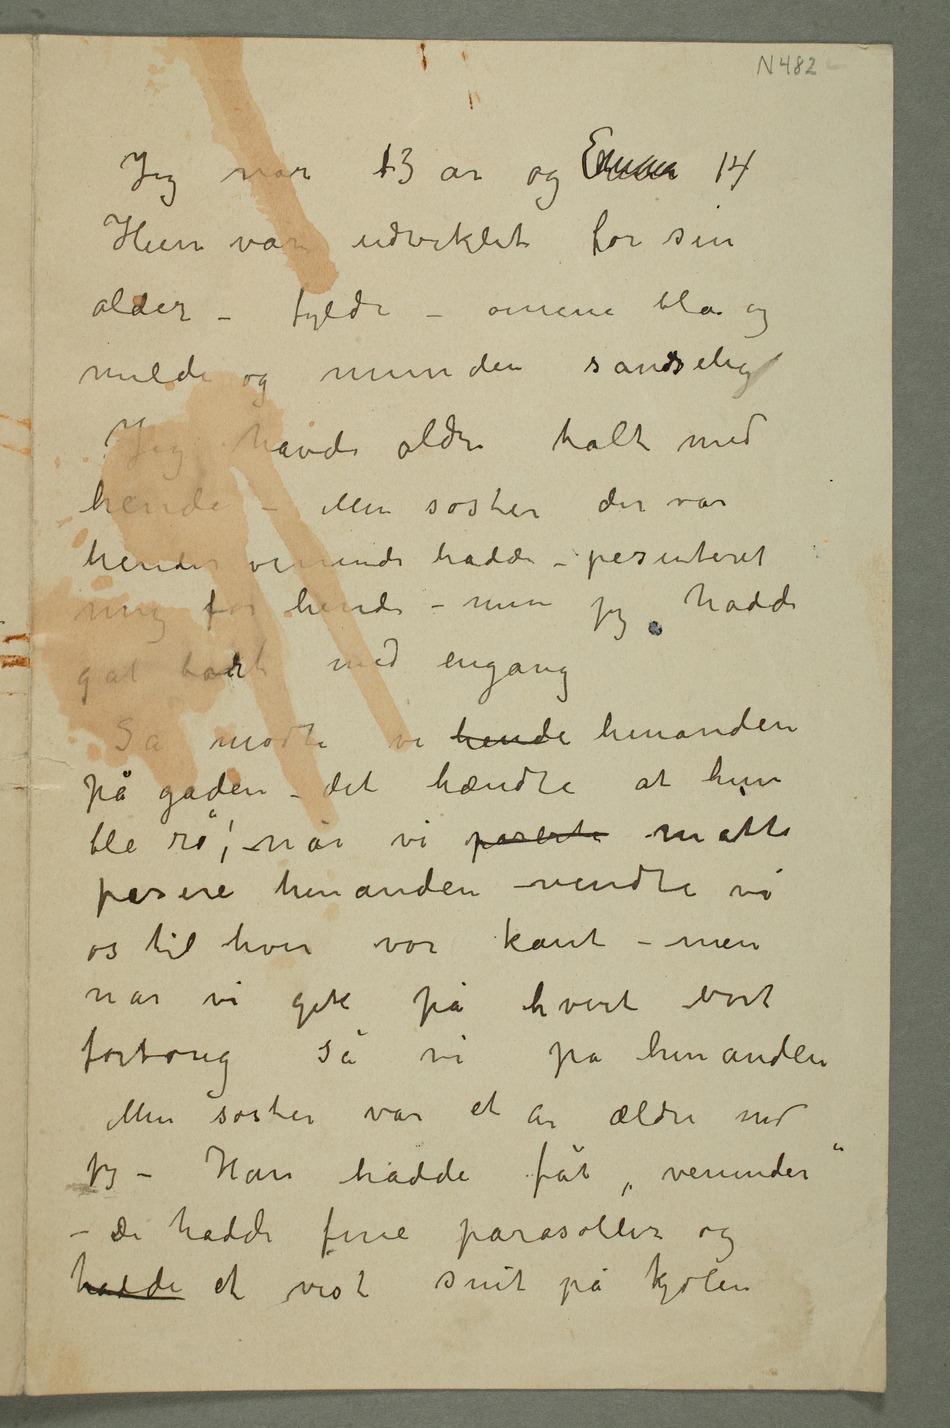 N 482
Jeg var 13 år og Emma 14
Hun var udviklet for sin
alder – fyldi – øinene blå og
milde og munden sandselig
Jeg havde aldri talt med
hende – Min søster der var
hendes veninde hadde pesenteret
mig for hende – men jeg hadde
gåt bort med engang
Så mødte vi hende hinanden
på gaden – det hændte at hun
ble rø, – når vi måtte
pasere hinanden – vendte vi
os til hver vor kant – men
når vi gik på hvert vort
fortoug så vi på hinanden
Min søster var et år ældre end
jeg – Hun hadde fåt „veninder“
– De hadde fine parasoller og
hadde et vist snit på kjolen